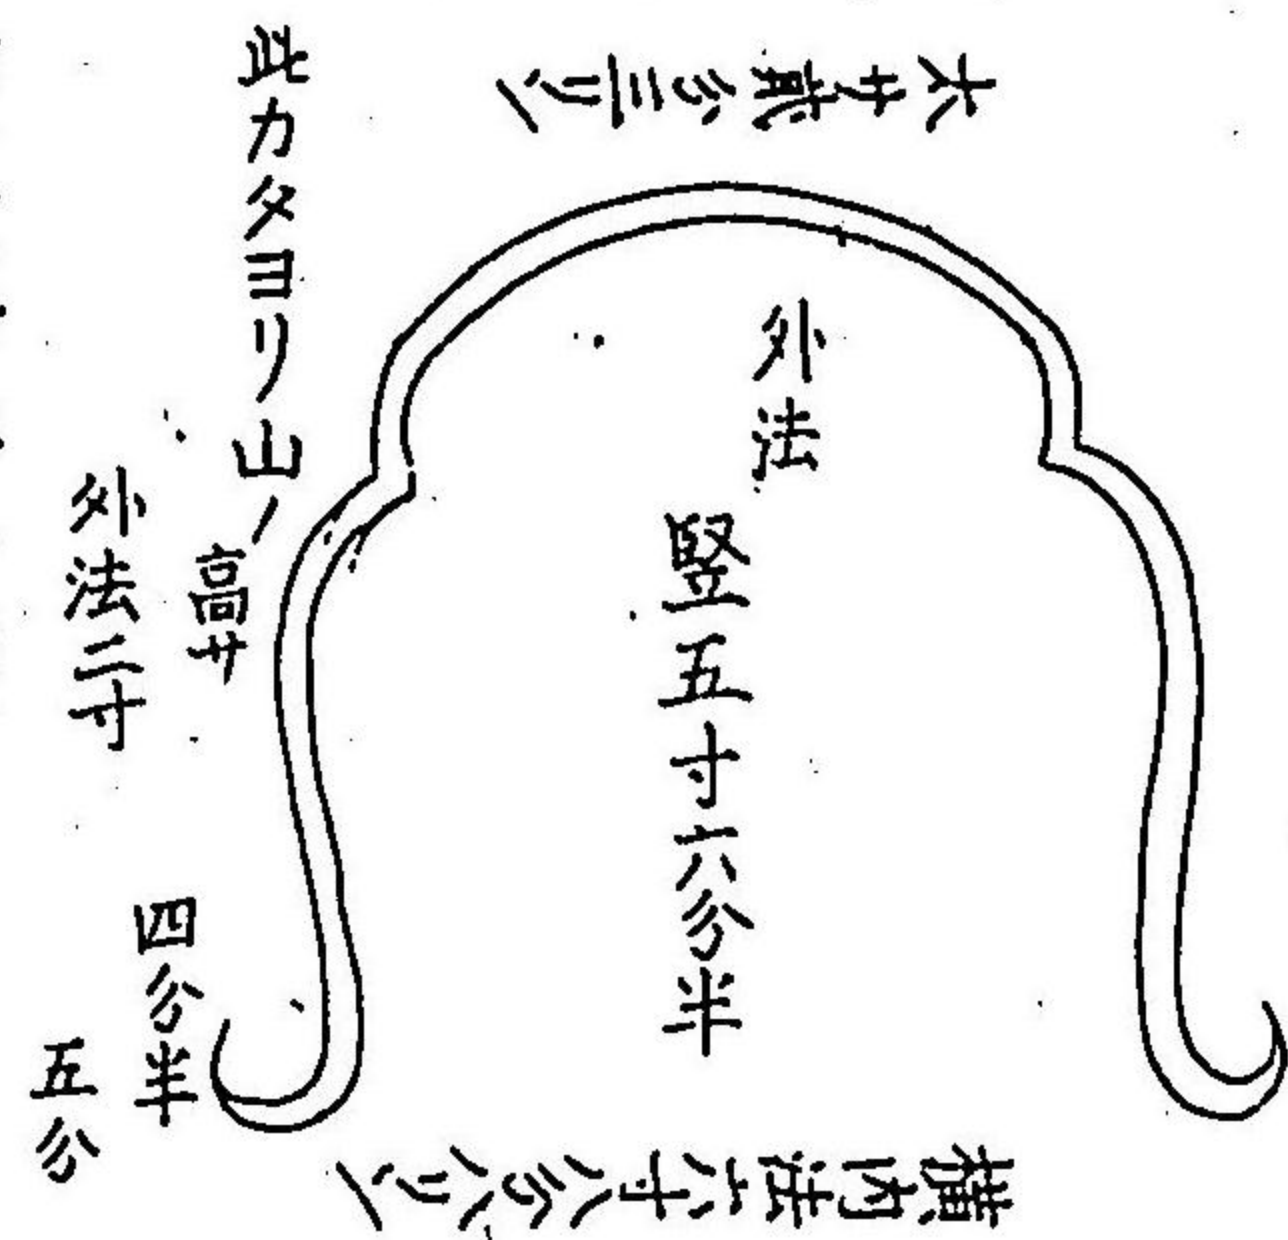 太サ貳分三リン
外法
竪五寸六分半
此カタヨリ山ノ
高サ
外法二寸
四分半
五分
横内法六寸八分八リン